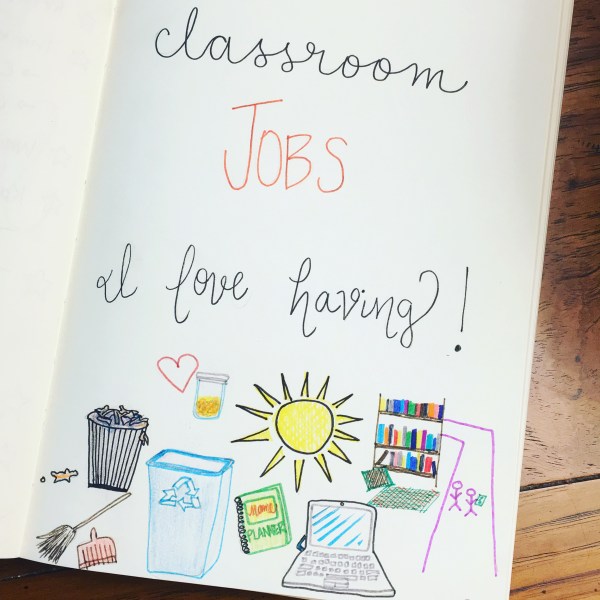 classroom
JOBS
I love having!
PLANNER